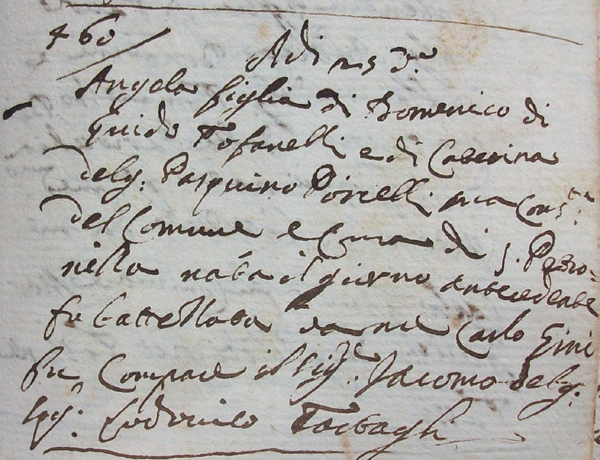 460
Adi 25 d.o
Angela figlia di Domenico di
Guido Tofanelli e di Caterina
del q. Pasquino Porrelli sua Cons.te
del Comune e Cura di S. Petro-
nilla nata il giorno antecedente
fu battezzata da me Carlo Gini
Pre Compare il Sig.r Jacomo del q.
Sig.r Lodovico